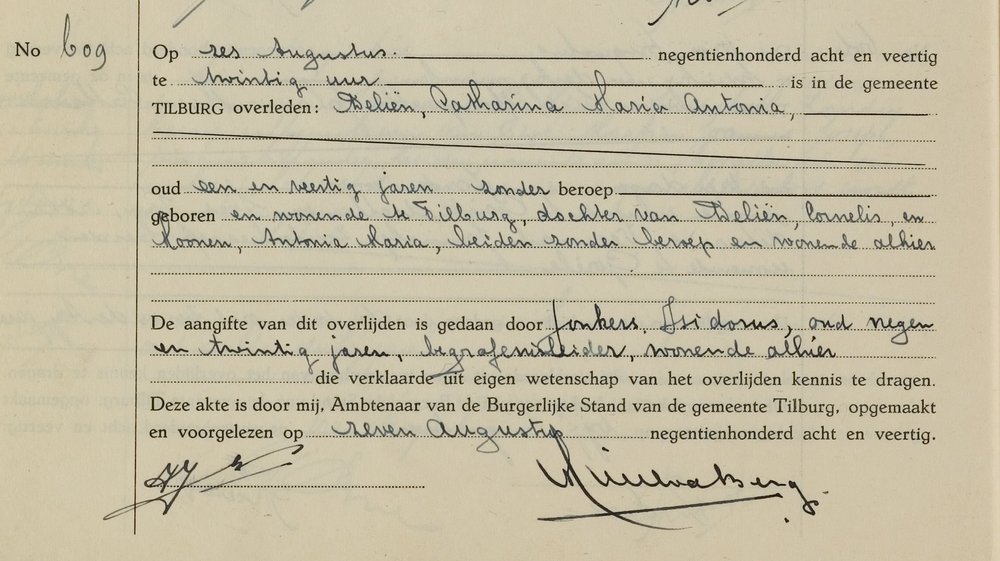 No 609
Op zes Augustus negentienhonderd acht en veertig
te twintig uur is in de gemeente
TILBURG overleden: Deliën, Catharina Maria Antonia,
oud een en veertig jaren zonder beroep
geboren en wonende te Tilburg, dochter van Deliën, Cornelis, en
Moonen, Antonia Maria, beiden zonder beroep en wonende alhier
De aangifte van dit overlijden is gedaan door Jonkers, Isidorus, oud negen
en twintig jaren, begrafenisleider, wonende alhier
die verklaarde uit eigen wetenschap van het overlijden kennis te dragen.
Deze akte is door mij, Ambtenaar van de Burgerlijke Stand van de gemeente Tilburg, opgemaakt
en voorgelezen op zeven Augustus negentienhonderd acht en veertig.